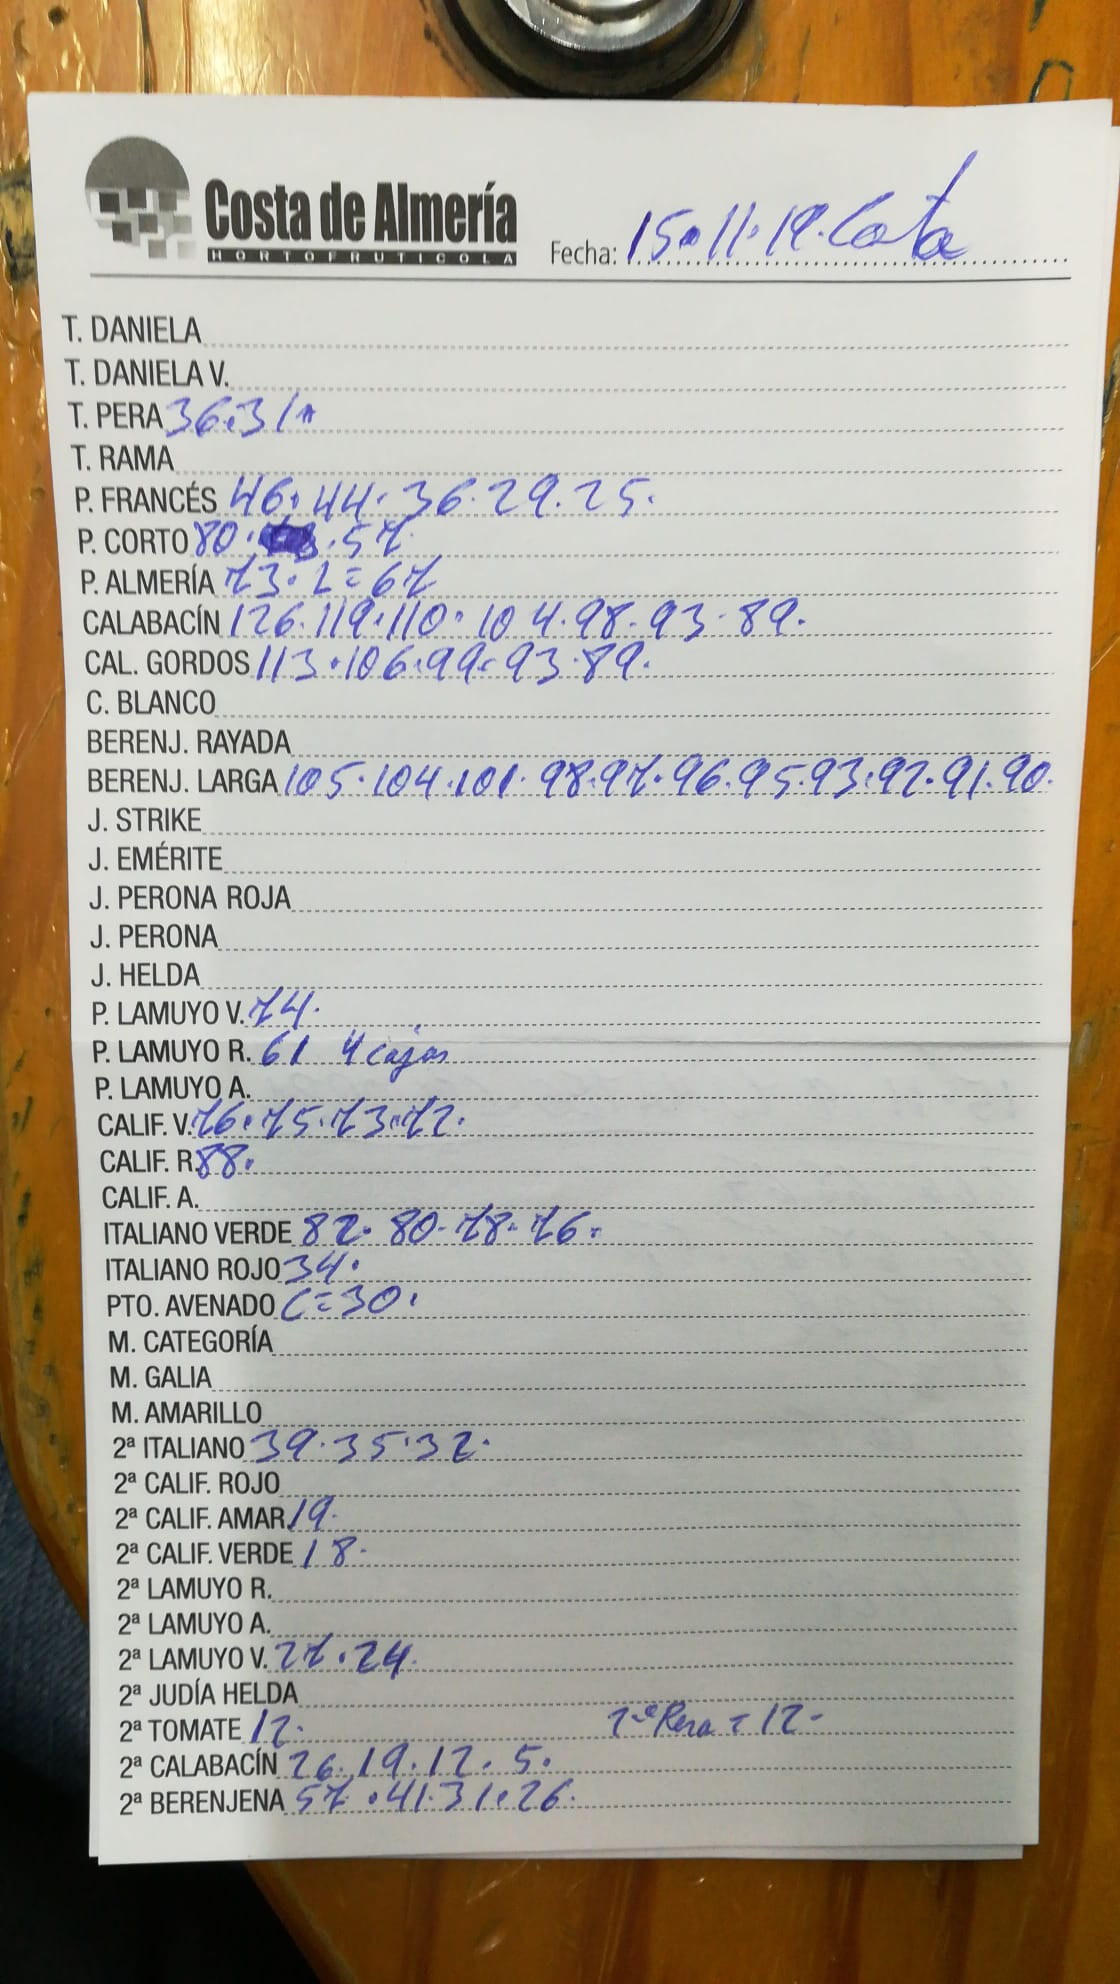 Costa de Almería
HORTOFRUTICOLA
Fecha: 15.11.19. Cota
T. DANIELA
T. DANIELA V.
T. PERA 36.31
T. RAMA
P. FRANCÉS 46.44.36.29.25.
P. CORTO 80. .57.
P. ALMERÍA 73. L=67
CALABACÍN 126.119.110.104.98.93.89.
CAL. GORDOS 113.106.99.93.89.
C. BLANCO
BERENJ. RAYADA
BERENJ. LARGA 105.104.101.98.97.96.95.93.92.91.90.
J. STRIKE
J. EMÉRITE
J. PERONA ROJA
J. PERONA
J. HELDA
P. LAMUYO V. 74.
P. LAMUYO R. 61 4 cajas
P. LAMUYO A.
CALIF. V. 76.75.73.72.
CALIF. R. 88.
CALIF. A.
ITALIANO VERDE 82.80.78.76.
ITALIANO ROJO 34.
PTO. AVENADO C=30.
M. CATEGORÍA
M. GALIA
M. AMARILLO
2ª ITALIANO 39.35.32.
2ª CALIF. ROJO
2ª CALIF. AMAR. 19.
2ª CALIF. VERDE 18.
2ª LAMUYO R.
2ª LAMUYO A.
2ª LAMUYO V. 27.24.
2ª JUDÍA HELDA
2ª TOMATE 12. Pera = 12.
2ª CALABACÍN 26.19.12.5.
2ª BERENJENA 57.41.31.26.